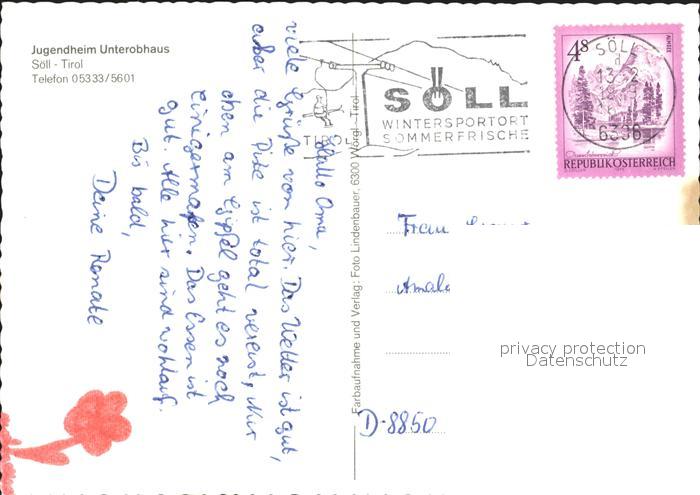 Jugendheim Unterobhaus
Söll - Tirol
Telefon 05333/5601
Hallo Oma,
viele Grüße von hier. Das Wetter ist gut,
aber die Piste ist total vereist, Nur
oben am Gipfel geht es noch
einigermaßen. Das Essen ist
gut. Alle hier sind wohlauf.
Bis bald,
Deine Renate
Farbaufnahme und Verlag: Foto Lindenbauer, 6300 Wörgl - Tirol
TIROL
SÖLL
WINTERSPORTORT
SOMMERFRISCHE
4S
ALMSEE
SÖLL
d
13.-2
6306
REPUBLIK ÖSTERREICH
Frau
Amal
D-8850
privacy protection
Datenschutz